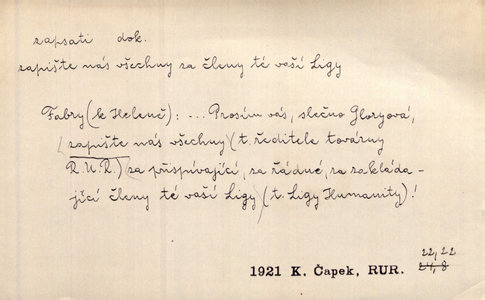 zapsati dok.
zapište nás všechny za členy té vaší Ligy
Fabry (k Heleně): ... Prosím vás, slečno Gloryová,
(zapište nás všechny (t. ředitele továrny
R.U.R.) za přispívající, za řádné, za zakláda-
jící členy té vaší Ligy) (t. Ligy Humanity)!
22, 22
1921 K. Čapek, RUR. 24, 8